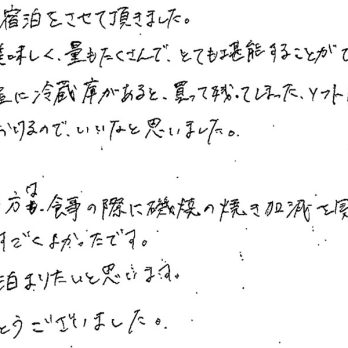 宿泊をさせて頂きました。
美味しく、量もたくさんで、とても堪能することがで
室に冷蔵庫があると、買って残ってしまった、ソフト
おけるので、いいなと思いました。
方は、食事の際に磯焼の焼き加減を
すごくよかったです。
泊まりたいと思います。
とうございました。